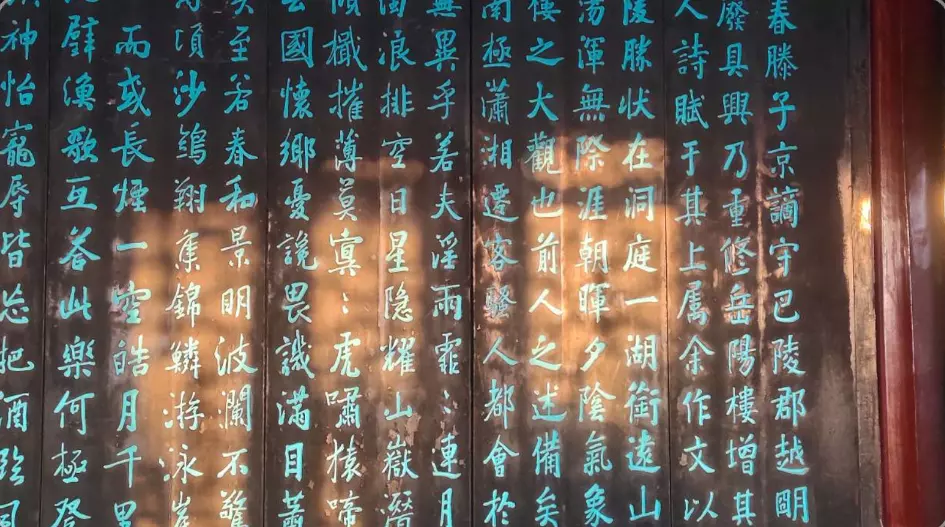 春滕子京謫守巴陵郡越明
廢具興乃重修岳陽樓增其
人詩賦于其上属余作文以
陵勝状在洞庭一湖銜遠山
湯渾無際涯朝暉夕陰氣象
樓之大觀也前人之述備矣
南極瀟湘遷客騷人都會於
無異乎若夫淫雨霏〻連月
濁浪排空日星隐耀山嶽潛
傾檝摧薄莫㝠〻虎嘯猿啼
去國懷鄉憂讒畏譏滿目蕭
矣至若春和景明波瀾不驚
頃沙鷗翔集錦鱗游泳岸
而或長煙一空皓月千里
璧漁歌互答此樂何極登
神怡寵辱皆忘把酒臨風